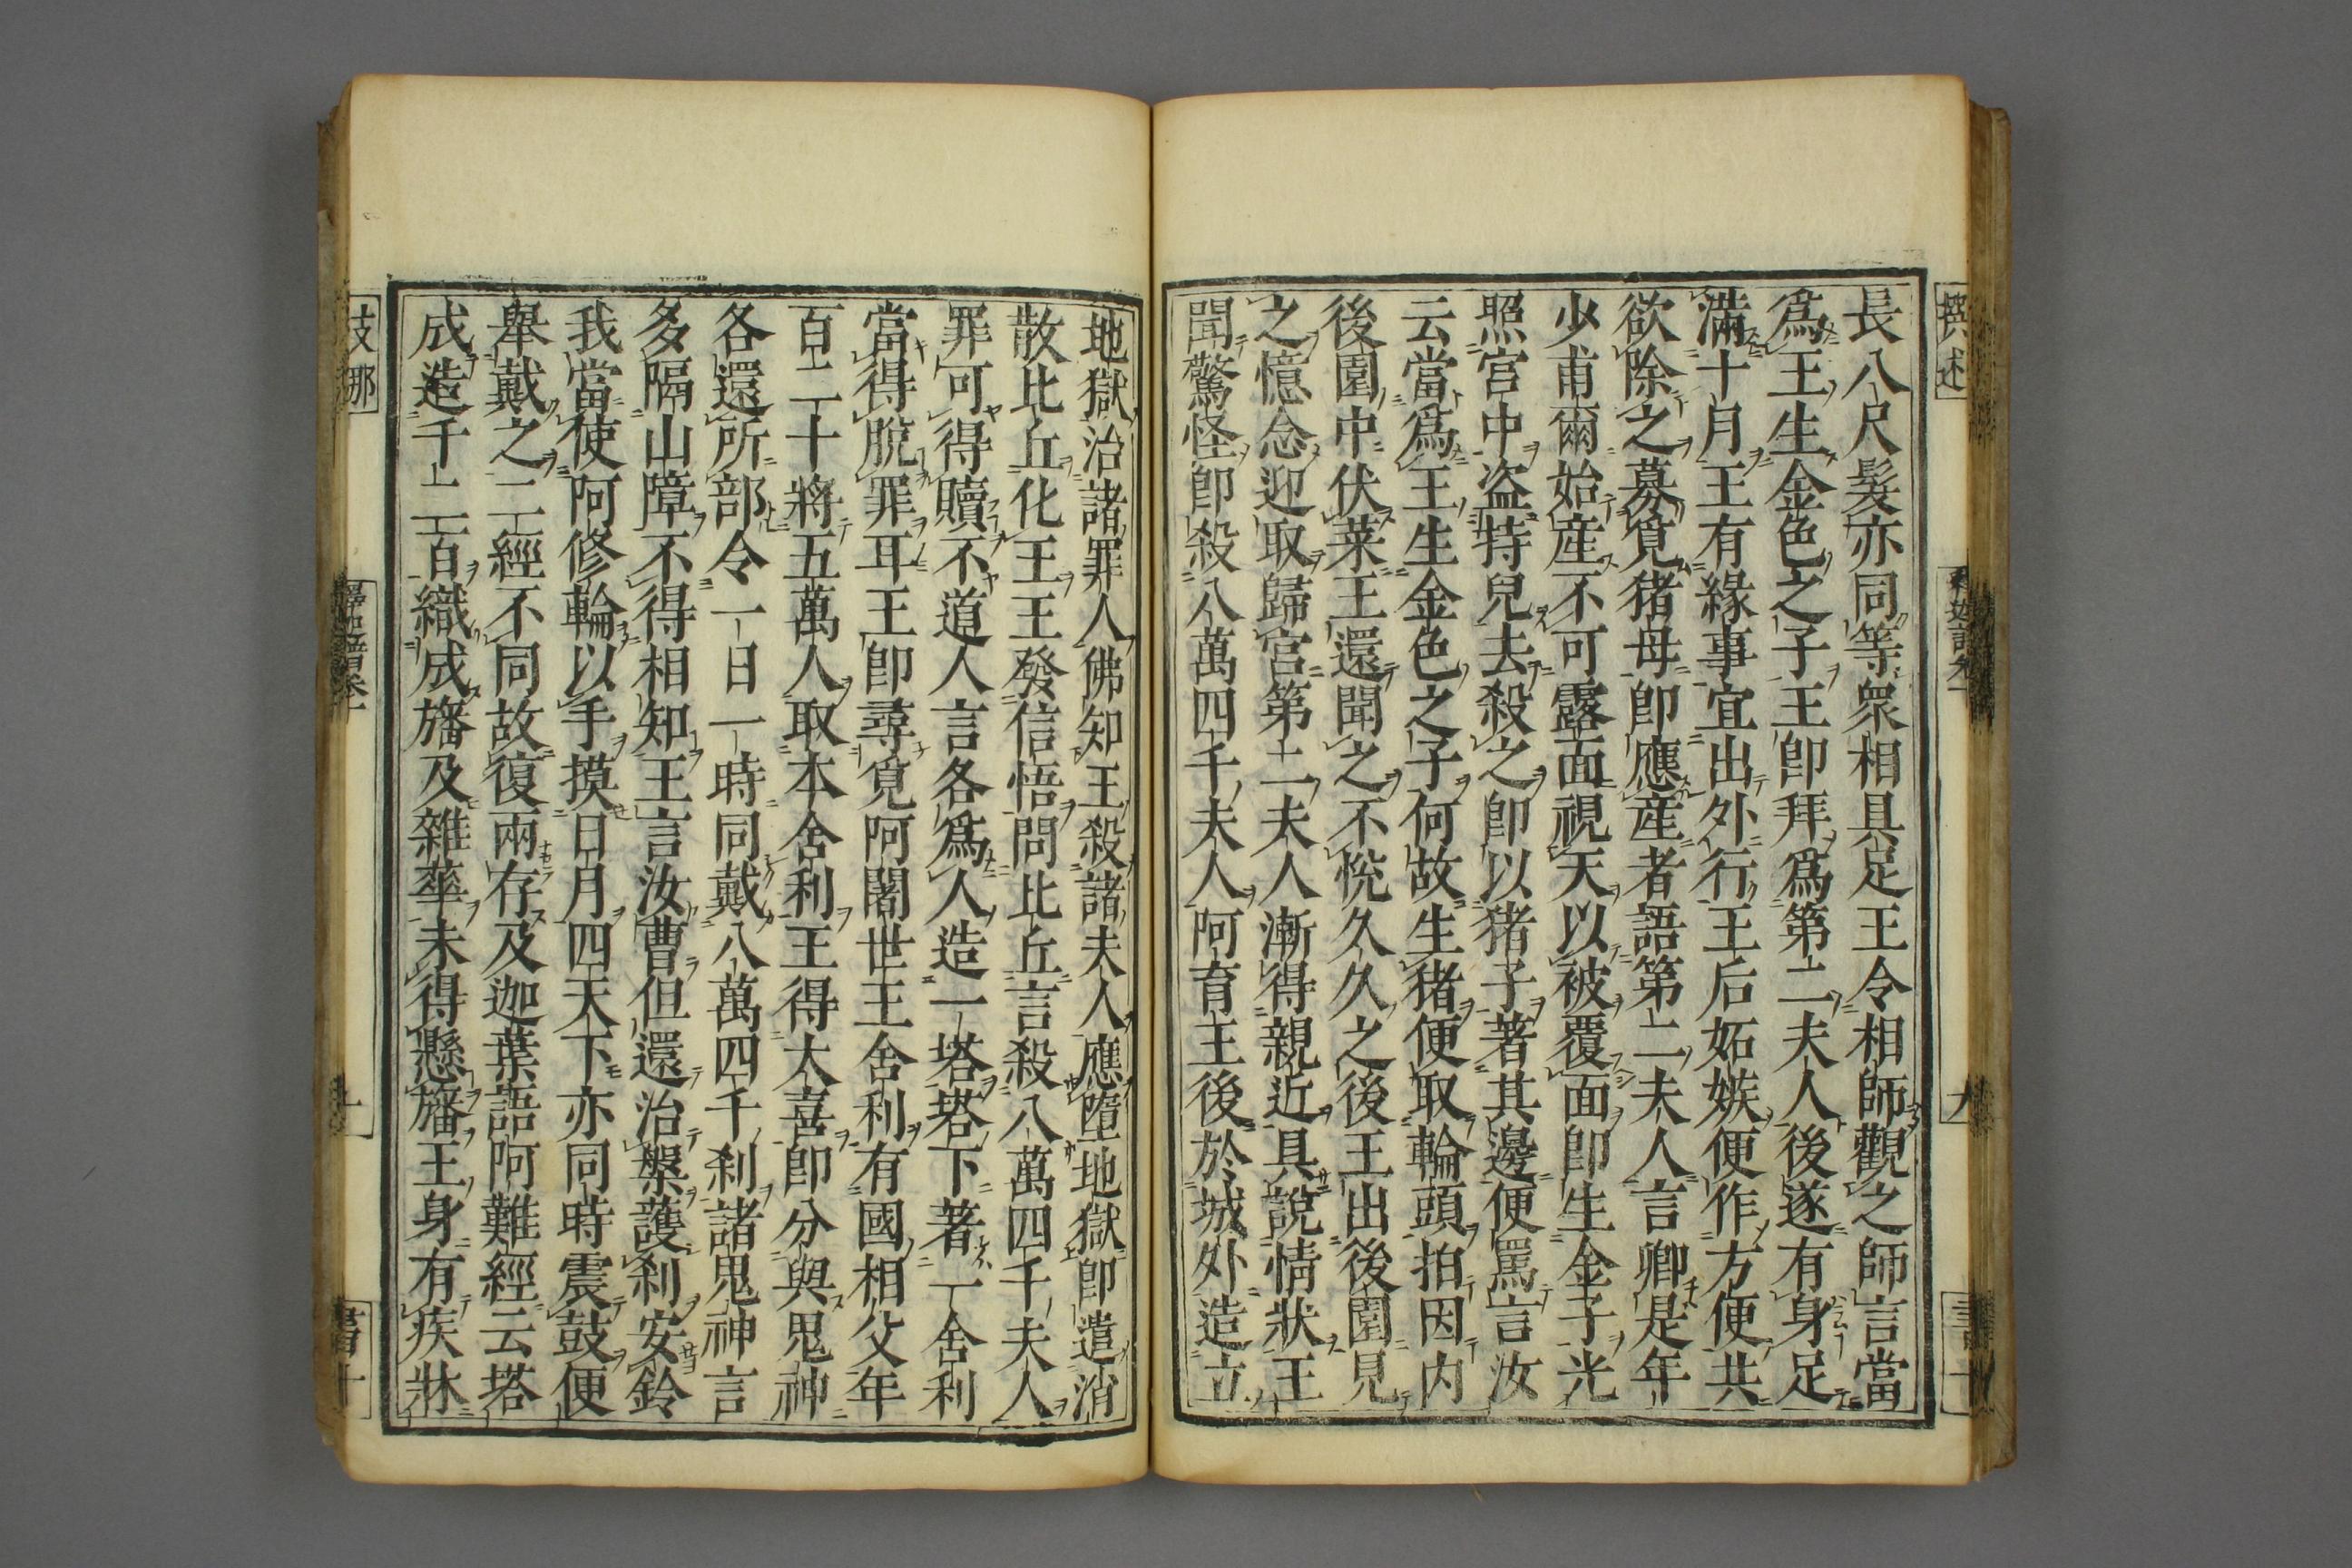 長八尺髮亦同等衆相具足王令相師觀之師言當
爲王生金色之子王卽拜爲第二夫人後遂有身足
滿十月王有緣事宜出外行王后妬嫉便作方便共
欲除之募覓猪母卽應產者語第二夫人言卿是年
少甫爾始產不可露面視天以被覆面卽生金子光
照宮中盗持兒去殺之卽以猪子著其邊便罵言汝
云當爲王生金色之子何故生猪便取輪頭拍因内
後園中伏菜王還聞之不悅久久之後王出後園見
之憶念迎取歸宮第二夫人漸得親近具說情狀王
聞驚怪卽殺八萬四千夫人阿育王後於城外造立
地獄治諸罪人佛知王殺諸夫人應墮地獄卽遣消
散比丘化王王發信悟問比丘言殺八萬四千夫人
罪可得贖不道人言各爲人造一塔塔下著一舍利
當得脫罪耳王卽尋覓阿闍世王舍利有國相父年
百二十將五萬人取本舍利王得大喜卽分與鬼神
各還所部令一日一時同戴八萬四千刹諸鬼神言
多隔山障不得相知王言汝曹但還治槃護刹安鈴
我當使阿修輪以手摸日月四天下亦同時震鼓便
舉戴之二經不同故復兩存及迦葉語阿難經云塔
成造千二百織成旛及雜華未得懸旛王身有疾牀
撰述
支那